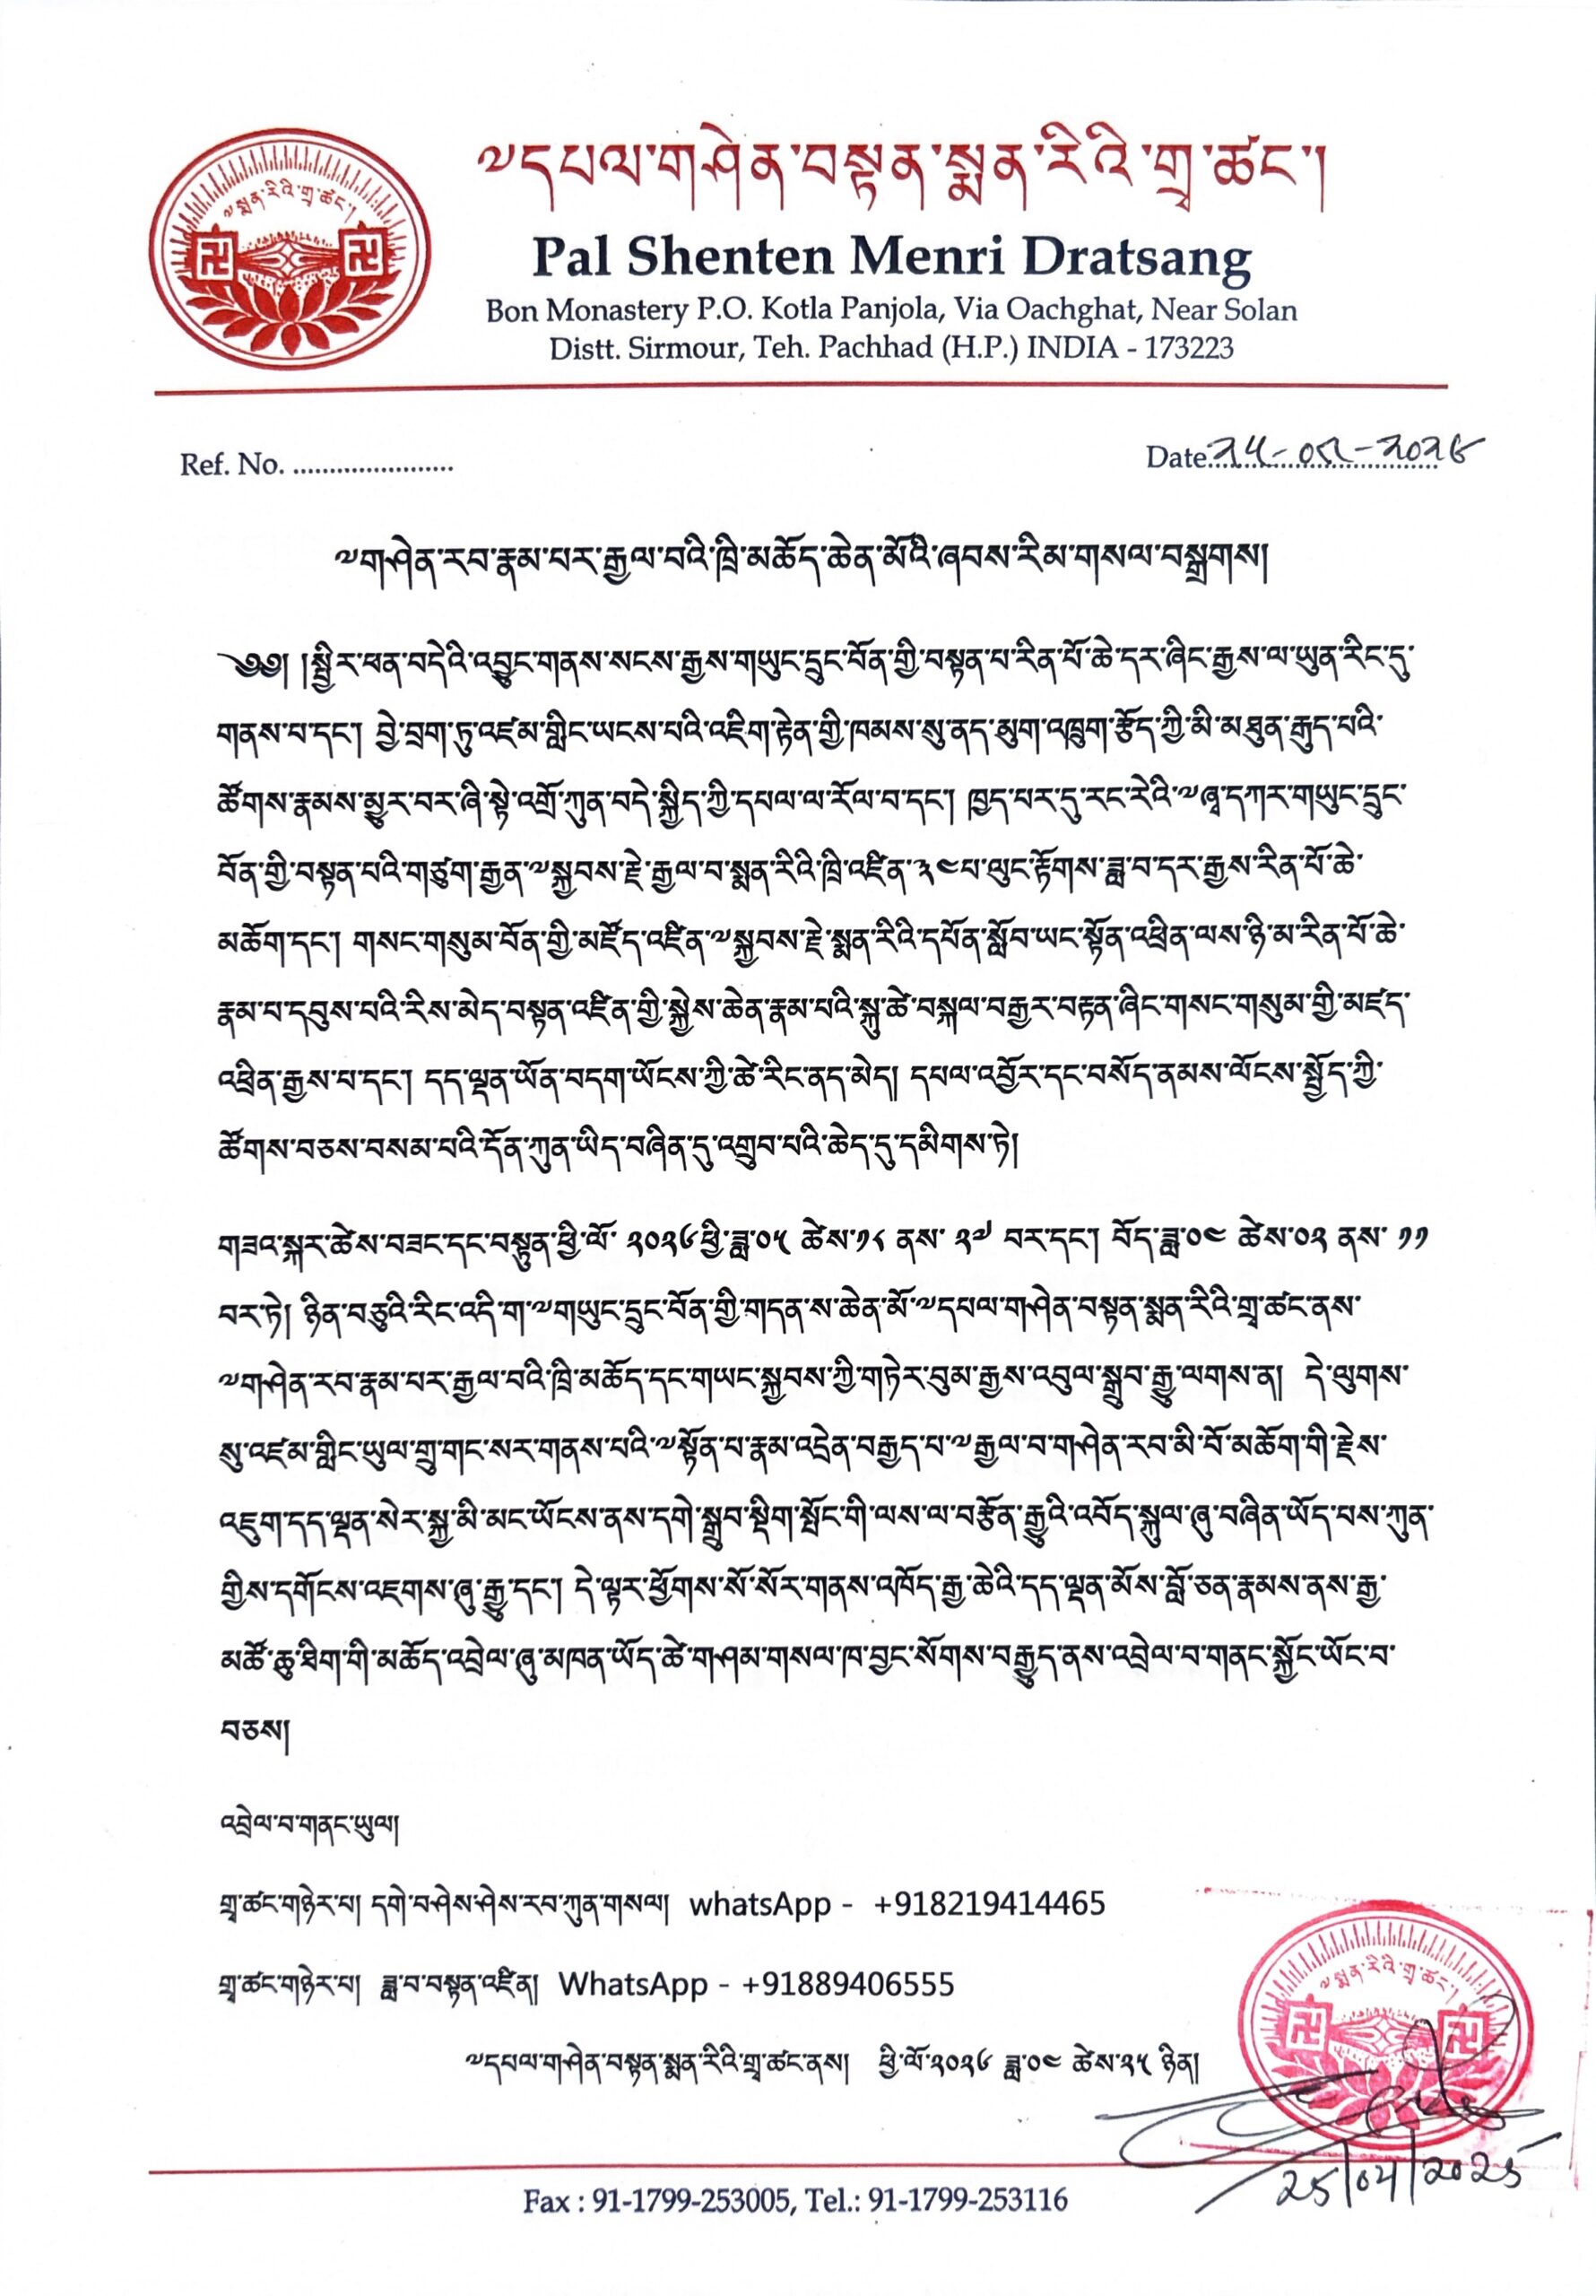 ༧སྨན་རིའི་གྲྭ་ཚང་།
༧དཔལ་གཤེན་བསྟན་སྨན་རིའི་གྲྭ་ཚང་།
Pal Shenten Menri Dratsang
Bon Monastery P.O. Kotla Panjola, Via Oachghat, Near Solan
Distt. Sirmour, Teh. Pachhad (H.P.) INDIA - 173223
Ref. No. ......................
Date ༢༥-༠༤-༢༠༢༦
༧གཤེན་རབ་རྣམ་པར་རྒྱལ་བའི་ཁྲི་མཆོད་ཆེན་མོའི་ཞབས་རིམ་གསལ་བསྒྲགས།
༄༅། །སྤྱིར་ཕན་བདེའི་འབྱུང་གནས་སངས་རྒྱས་གཡུང་དྲུང་བོན་གྱི་བསྟན་པ་རིན་པོ་ཆེ་དར་ཞིང་རྒྱས་ལ་ཡུན་རིང་དུ་
གནས་པ་དང་། བྱེ་བྲག་ཏུ་འཛམ་གླིང་ཡངས་པའི་འཇིག་རྟེན་གྱི་ཁམས་སུ་ནད་མུག་འཁྲུག་རྩོད་ཀྱི་མི་མཐུན་རྒུད་པའི་
ཚོགས་རྣམས་མྱུར་བར་ཞི་སྟེ་འགྲོ་ཀུན་བདེ་སྐྱིད་ཀྱི་དཔལ་ལ་རོལ་བ་དང་། ཁྱད་པར་དུ་རང་རེའི་༧ཞྭ་དཀར་གཡུང་དྲུང་
བོན་གྱི་བསྟན་པའི་གཙུག་རྒྱན་༧སྐྱབས་རྗེ་རྒྱལ་བ་སྨན་རིའི་ཁྲི་འཛིན་༣༤པ་ལུང་རྟོགས་ཟླ་བ་དར་རྒྱས་རིན་པོ་ཆེ་
མཆོག་དང་། གསང་གསུམ་བོན་གྱི་མཛོད་འཛིན་༧སྐྱབས་རྗེ་སྨན་རིའི་དཔོན་སློབ་ཡང་སྟོན་འཕྲིན་ལས་ཉི་མ་རིན་པོ་ཆེ་
རྣམ་པ་དབུས་པའི་རིས་མེད་བསྟན་འཛིན་གྱི་སྐྱེས་ཆེན་རྣམ་པའི་སྐུ་ཚེ་བསྐལ་བརྒྱར་བརྟན་ཞིང་གསང་གསུམ་གྱི་མཛད་
འཕྲིན་རྒྱས་པ་དང་། དད་ལྡན་ཡོན་བདག་ཡོངས་ཀྱི་ཚེ་རིང་ནད་མེད། དཔལ་འབྱོར་དང་བསོད་ནམས་ལོངས་སྤྱོད་ཀྱི་
ཚོགས་བཅས་བསམ་པའི་དོན་ཀུན་ཡིད་བཞིན་དུ་འགྲུབ་པའི་ཆེད་དུ་དམིགས་ཏེ།
གཟའ་སྐར་ཚེས་བཟང་དང་བསྟུན་ཕྱི་ལོ་ ༢༠༢༦ཕྱི་ཟླ་༠༥ ཚེས་༡༨ ནས་ ༢༧ བར་དང་། བོད་ཟླ་༠༤ ཚེས་༠༢ ནས་ ༡༡
བར་ཏེ། ཉིན་བཅུའི་རིང་འདི་ག་༧གཡུང་དྲུང་བོན་གྱི་གདན་ས་ཆེན་མོ་༧དཔལ་གཤེན་བསྟན་སྨན་རིའི་གྲྭ་ཚང་ནས་
༧གཤེན་རབ་རྣམ་པར་རྒྱལ་བའི་ཁྲི་མཆོད་དང་གཡང་སྐྱབས་ཀྱི་གཏེར་བུམ་རྒྱས་འབུལ་སྒྲུབ་རྒྱུ་ལགས་ན། དེ་ལུགས་
སུ་འཛམ་གླིང་ཡུལ་གྲུ་གང་སར་གནས་པའི་༧སྟོན་པ་རྣམ་འདྲེན་བརྒྱད་པ་༧རྒྱལ་བ་གཤེན་རབ་མི་བོ་མཆོག་གི་རྗེས་
འཇུག་དད་ལྡན་སེར་སྐྱ་མི་མང་ཡོངས་ནས་དགེ་སྒྲུབ་སྡིག་སྤོང་གི་ལས་ལ་བརྩོན་རྒྱུའི་འབོད་སྐུལ་ཞུ་བཞིན་ཡོད་པས་ཀུན་
གྱིས་དགོངས་འཇགས་ཞུ་རྒྱུ་དང་། དེ་ལྟར་ཕྱོགས་སོ་སོར་གནས་འཁོད་རྒྱ་ཆེའི་དད་ལྡན་མོས་བློ་ཅན་རྣམས་ནས་རྒྱ་
མཚོ་ཆུ་ཐིག་གི་མཆོད་འབྲེལ་ཞུ་མཁན་ཡོད་ཚེ་གཤམ་གསལ་ཁ་བྱང་སོགས་བརྒྱུད་ནས་འབྲེལ་བ་གནང་སྐྱོང་ཡོང་བ་
བཅས།
འབྲེལ་བ་གནང་ཡུལ།
གྲྭ་ཚང་གཉེར་པ། དགེ་བཤེས་ཤེས་རབ་ཀུན་གསལ། whatsApp - +918219414465
གྲྭ་ཚང་གཉེར་པ། ཟླ་བ་བསྟན་འཛིན། WhatsApp - +91889406555
༧དཔལ་གཤེན་བསྟན་སྨན་རིའི་གྲྭ་ཚང་ནས། ཕྱི་ལོ་༢༠༢༦ ཟླ་༠༤ ཚེས་༢༥ ཉིན།
༧སྨན་རིའི་གྲྭ་ཚང་།
Fax : 91-1799-253005, Tel.: 91-1799-253116